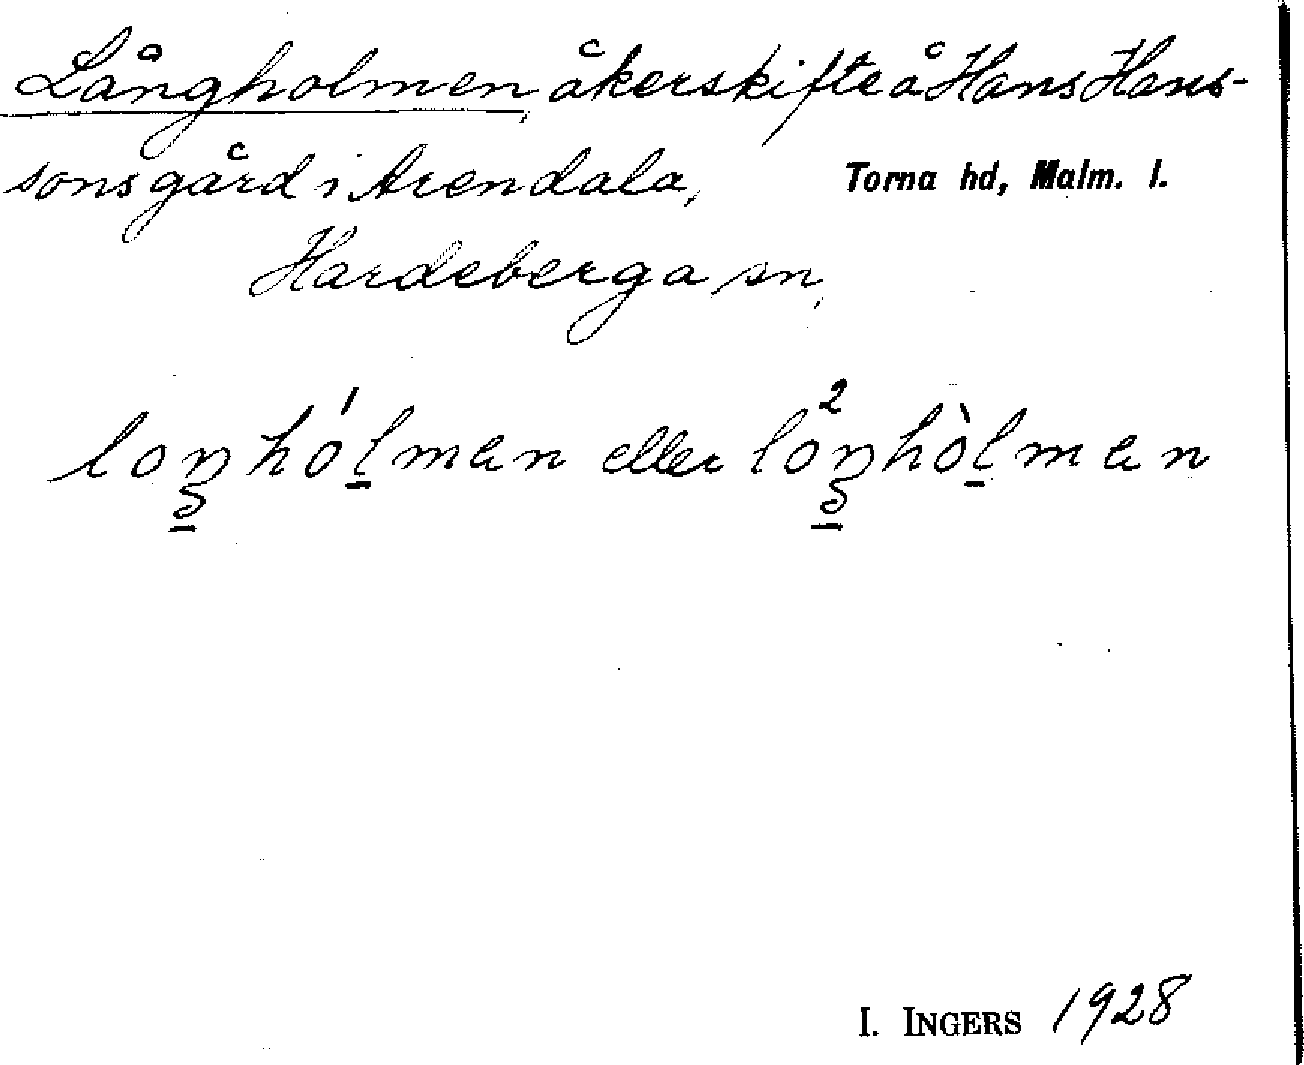 Långholmen, åkerskifte å Hans Hans-
sons gård i Arendala, Torna hd, Malm. l.
Hardeberga sn,
loŋhólmen eller lòŋhòlmen
I. INGERS 1928